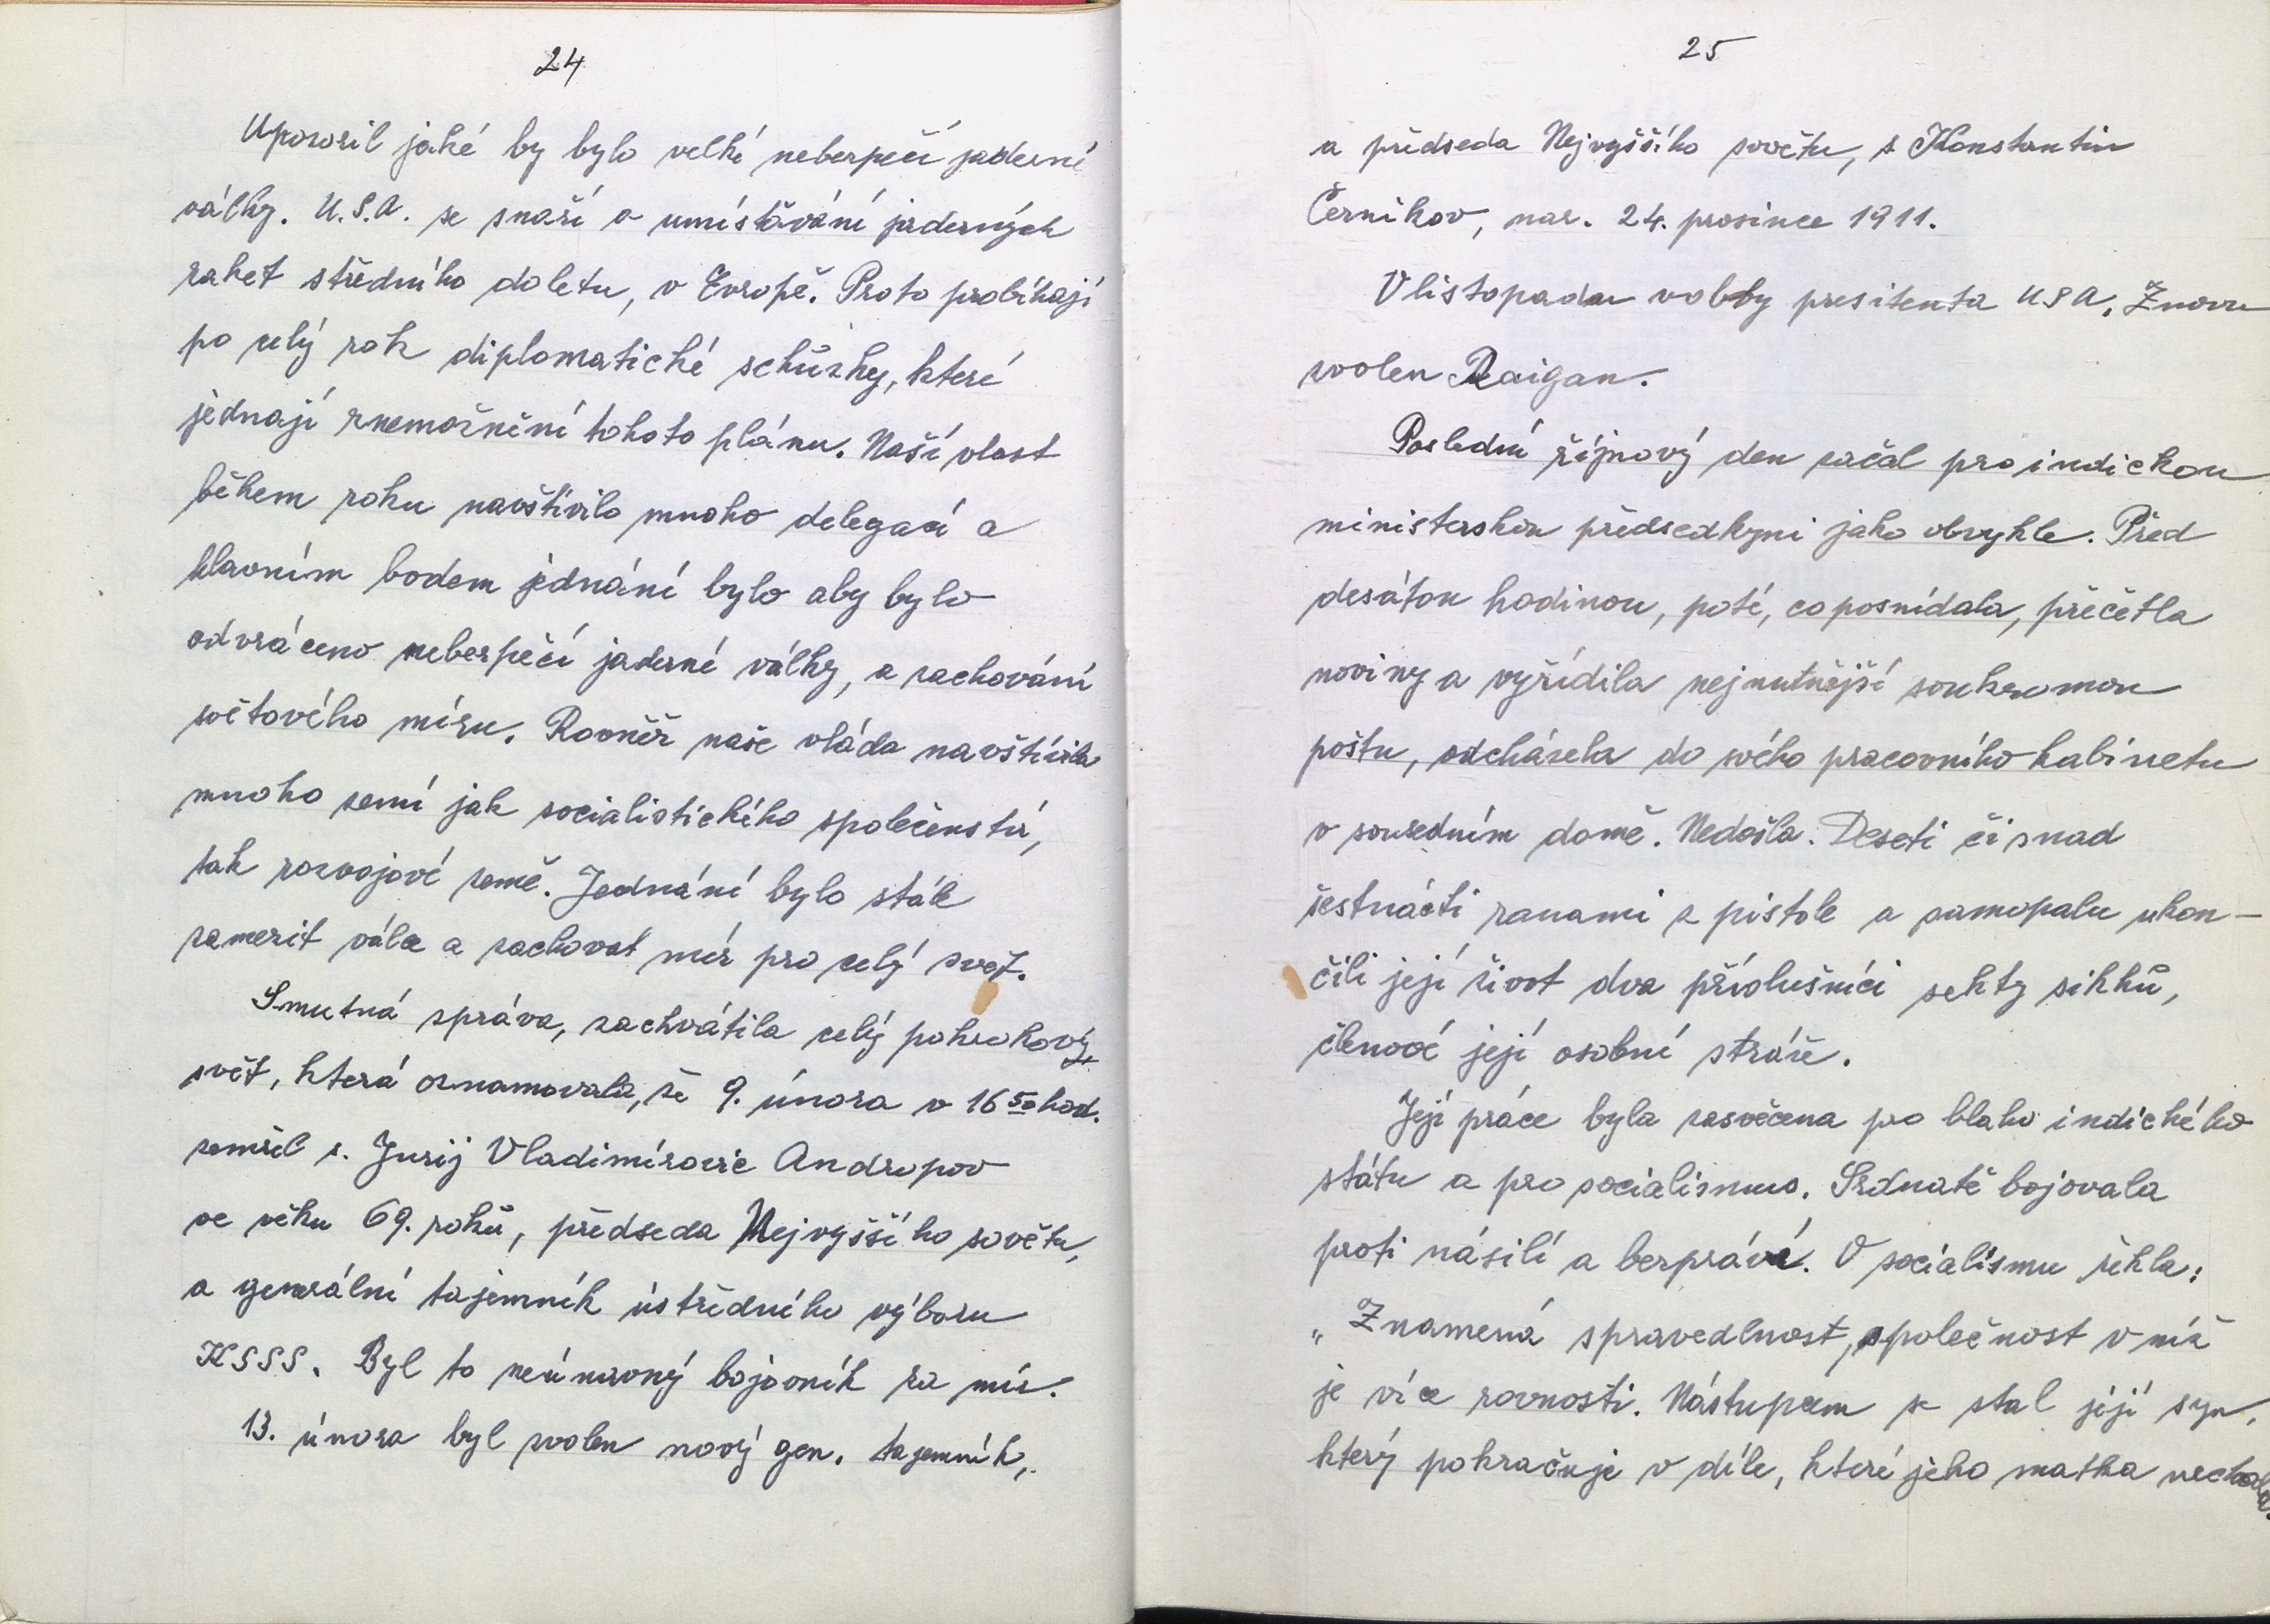 24
Upozornil jaké by bylo velké neberpečí jaderné
války. U.S.A. se snaží o umísťávání jaderných
raket středního doletu, v Evropě. Proto probíhají
po celý rok diplomatické schůzky, které
jednají znemožnění tohoto plánu. Naší vlast
během roku navštívilo mnoho delegací a
hlavním bodem jednání bylo aby bylo
odvráceno nebezpečí jaderné války, a zachování
světového míru. Rovněž naše vláda navštívila
mnoho zemí jak socialistického společenství,
tak rozvojové země. Jednání bylo stále
zamezit válce a zachovat mír pro celý svět.
Smutná zpráva, zachvátila celý pokrokový
svět, která oznamovala, že 9. února v 16 50 hod.
zemřel s. Jurij Vladimírovič Andropov
ve věku 69. roků, předseda Nejvyššího sovětu,
a generální tajemník ústředního výboru
KSSS. Byl to neúnavný bojovník za mír.
13. února byl zvolen nový gen. tajemník,
25
a předseda Nejvyššího sovětu, s Konstantin
Černikov, nar. 24. prosince 1911.
V listopadu volby presitenta USA. Znovu
zvolen Raigan.
Poslední říjnový den začal pro indickou
ministerskou předsedkyni jako obvykle. Před
desátou hodinou, poté, co posnídala, přečetla
noviny a vyřídila nejnutnější soukromou
poštu, odcházela do svého pracovního kabinetu
v sousedním domě. Nedošla. Deseti či snad
šestnácti ranami z pistole a samopalu ukon-
čili její život dva příslušníci sekty sikhů,
členové její osobní stráže.
Její práce byla zasvěcena pro blaho indického
státu a pro socialismus. Srdnatě bojovala
proti násilí a bezpráví. O socialismu řekla:
„Znamená spravedlnost, společnost v níž
je více rovnosti. Nástupcem se stal její syn,
který pokračuje v díle, které jeho matka nechala.